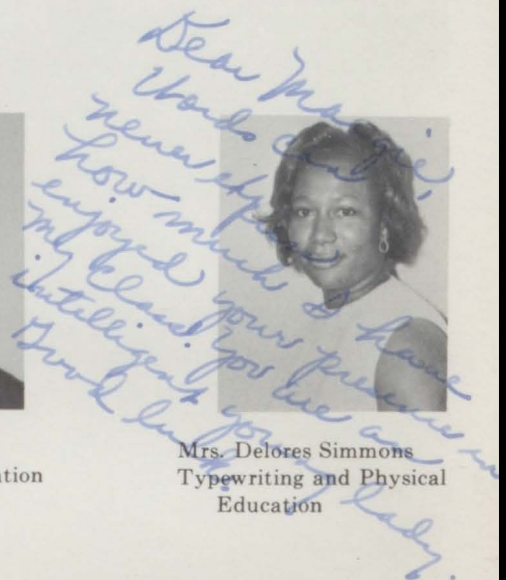 Dear Margie,
Words can
never express
how much I have
enjoyed your presence in
my class. You are an
intelligent young lady.
Good luck.
Mrs. Delores Simmons
Typewriting and Physical
Education
ation